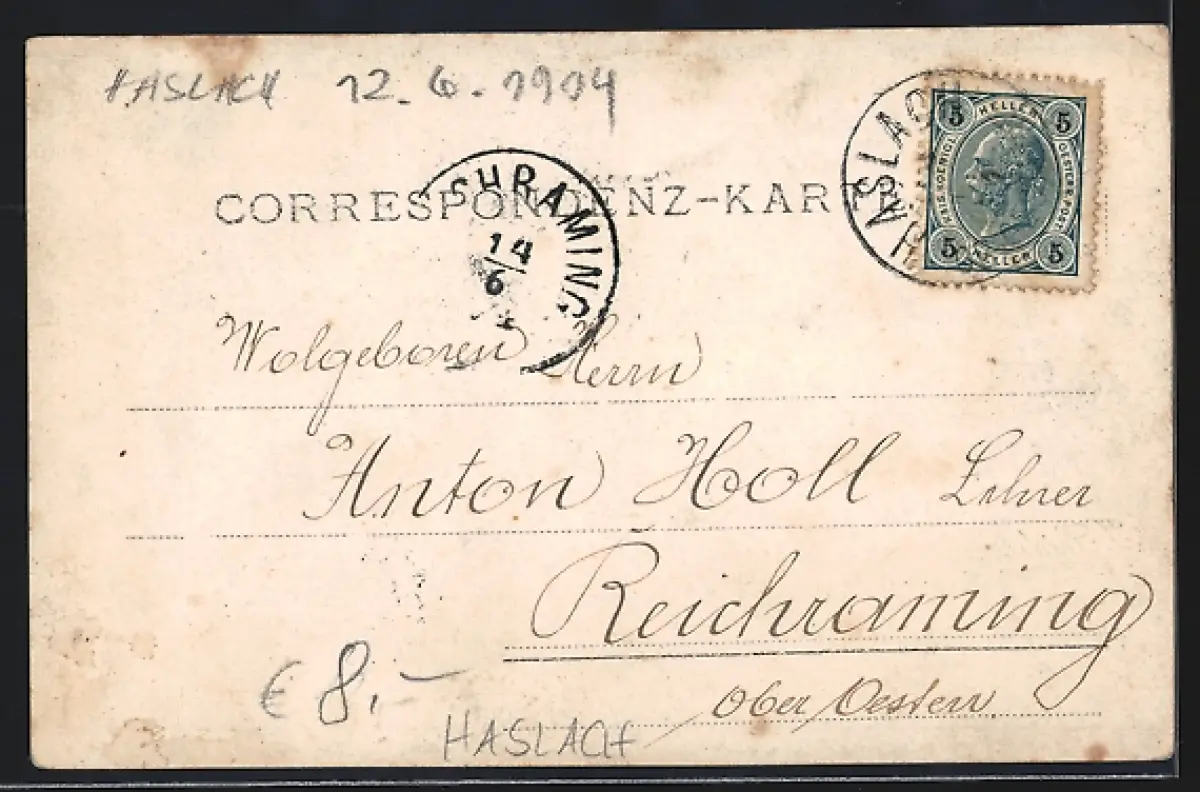 HASLACH 12.6.1904
CORRESPONDENZ-KARTE
HASLACH
5 HELLER 5
KAIS. KOENIGL. OESTERR. POST
5 HELLER 5
CHRAMING
14
6
Wolgeboren Herrn
Anton Holl Lehrer
Reichraming
Ober Oesterr
€ 8,-
HASLACH